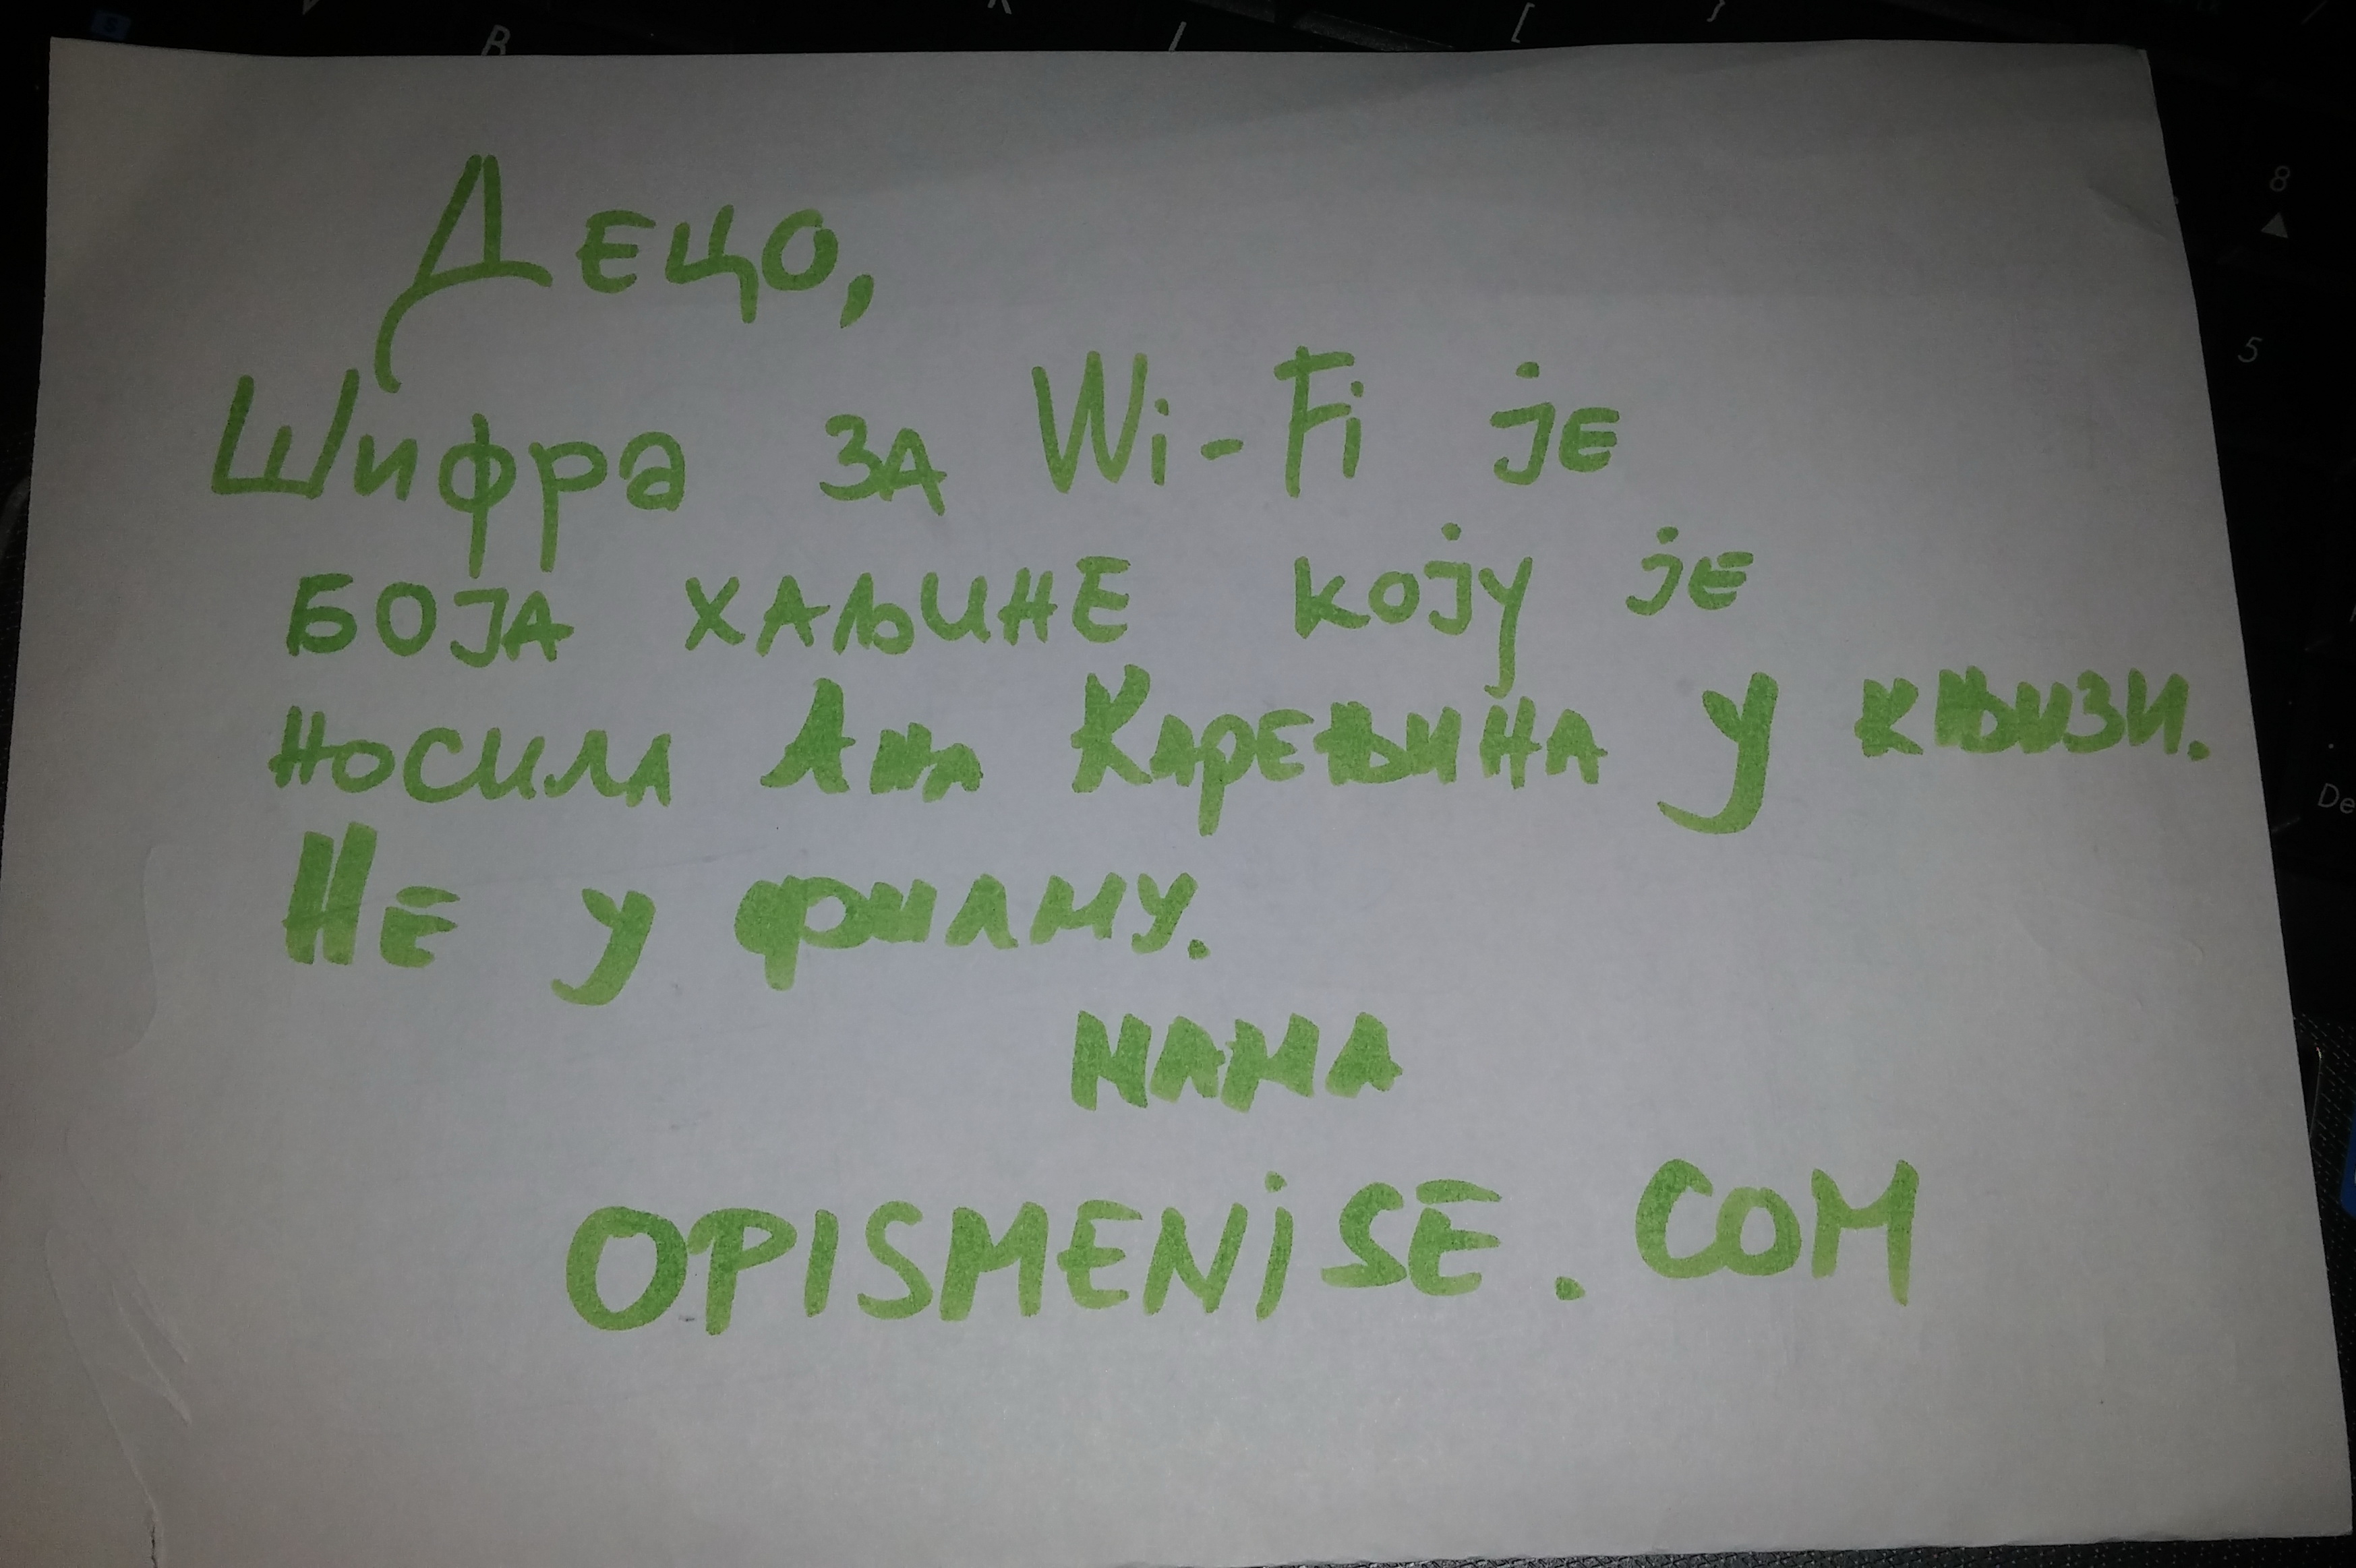 Децо,
Шифра за Wi-Fi је
БОЈА ХАЉИНЕ КОЈУ ЈЕ
НОСИЛА Ана Карењина у књизи.
Не у филму.
МАМА
OPISMENISE.COM